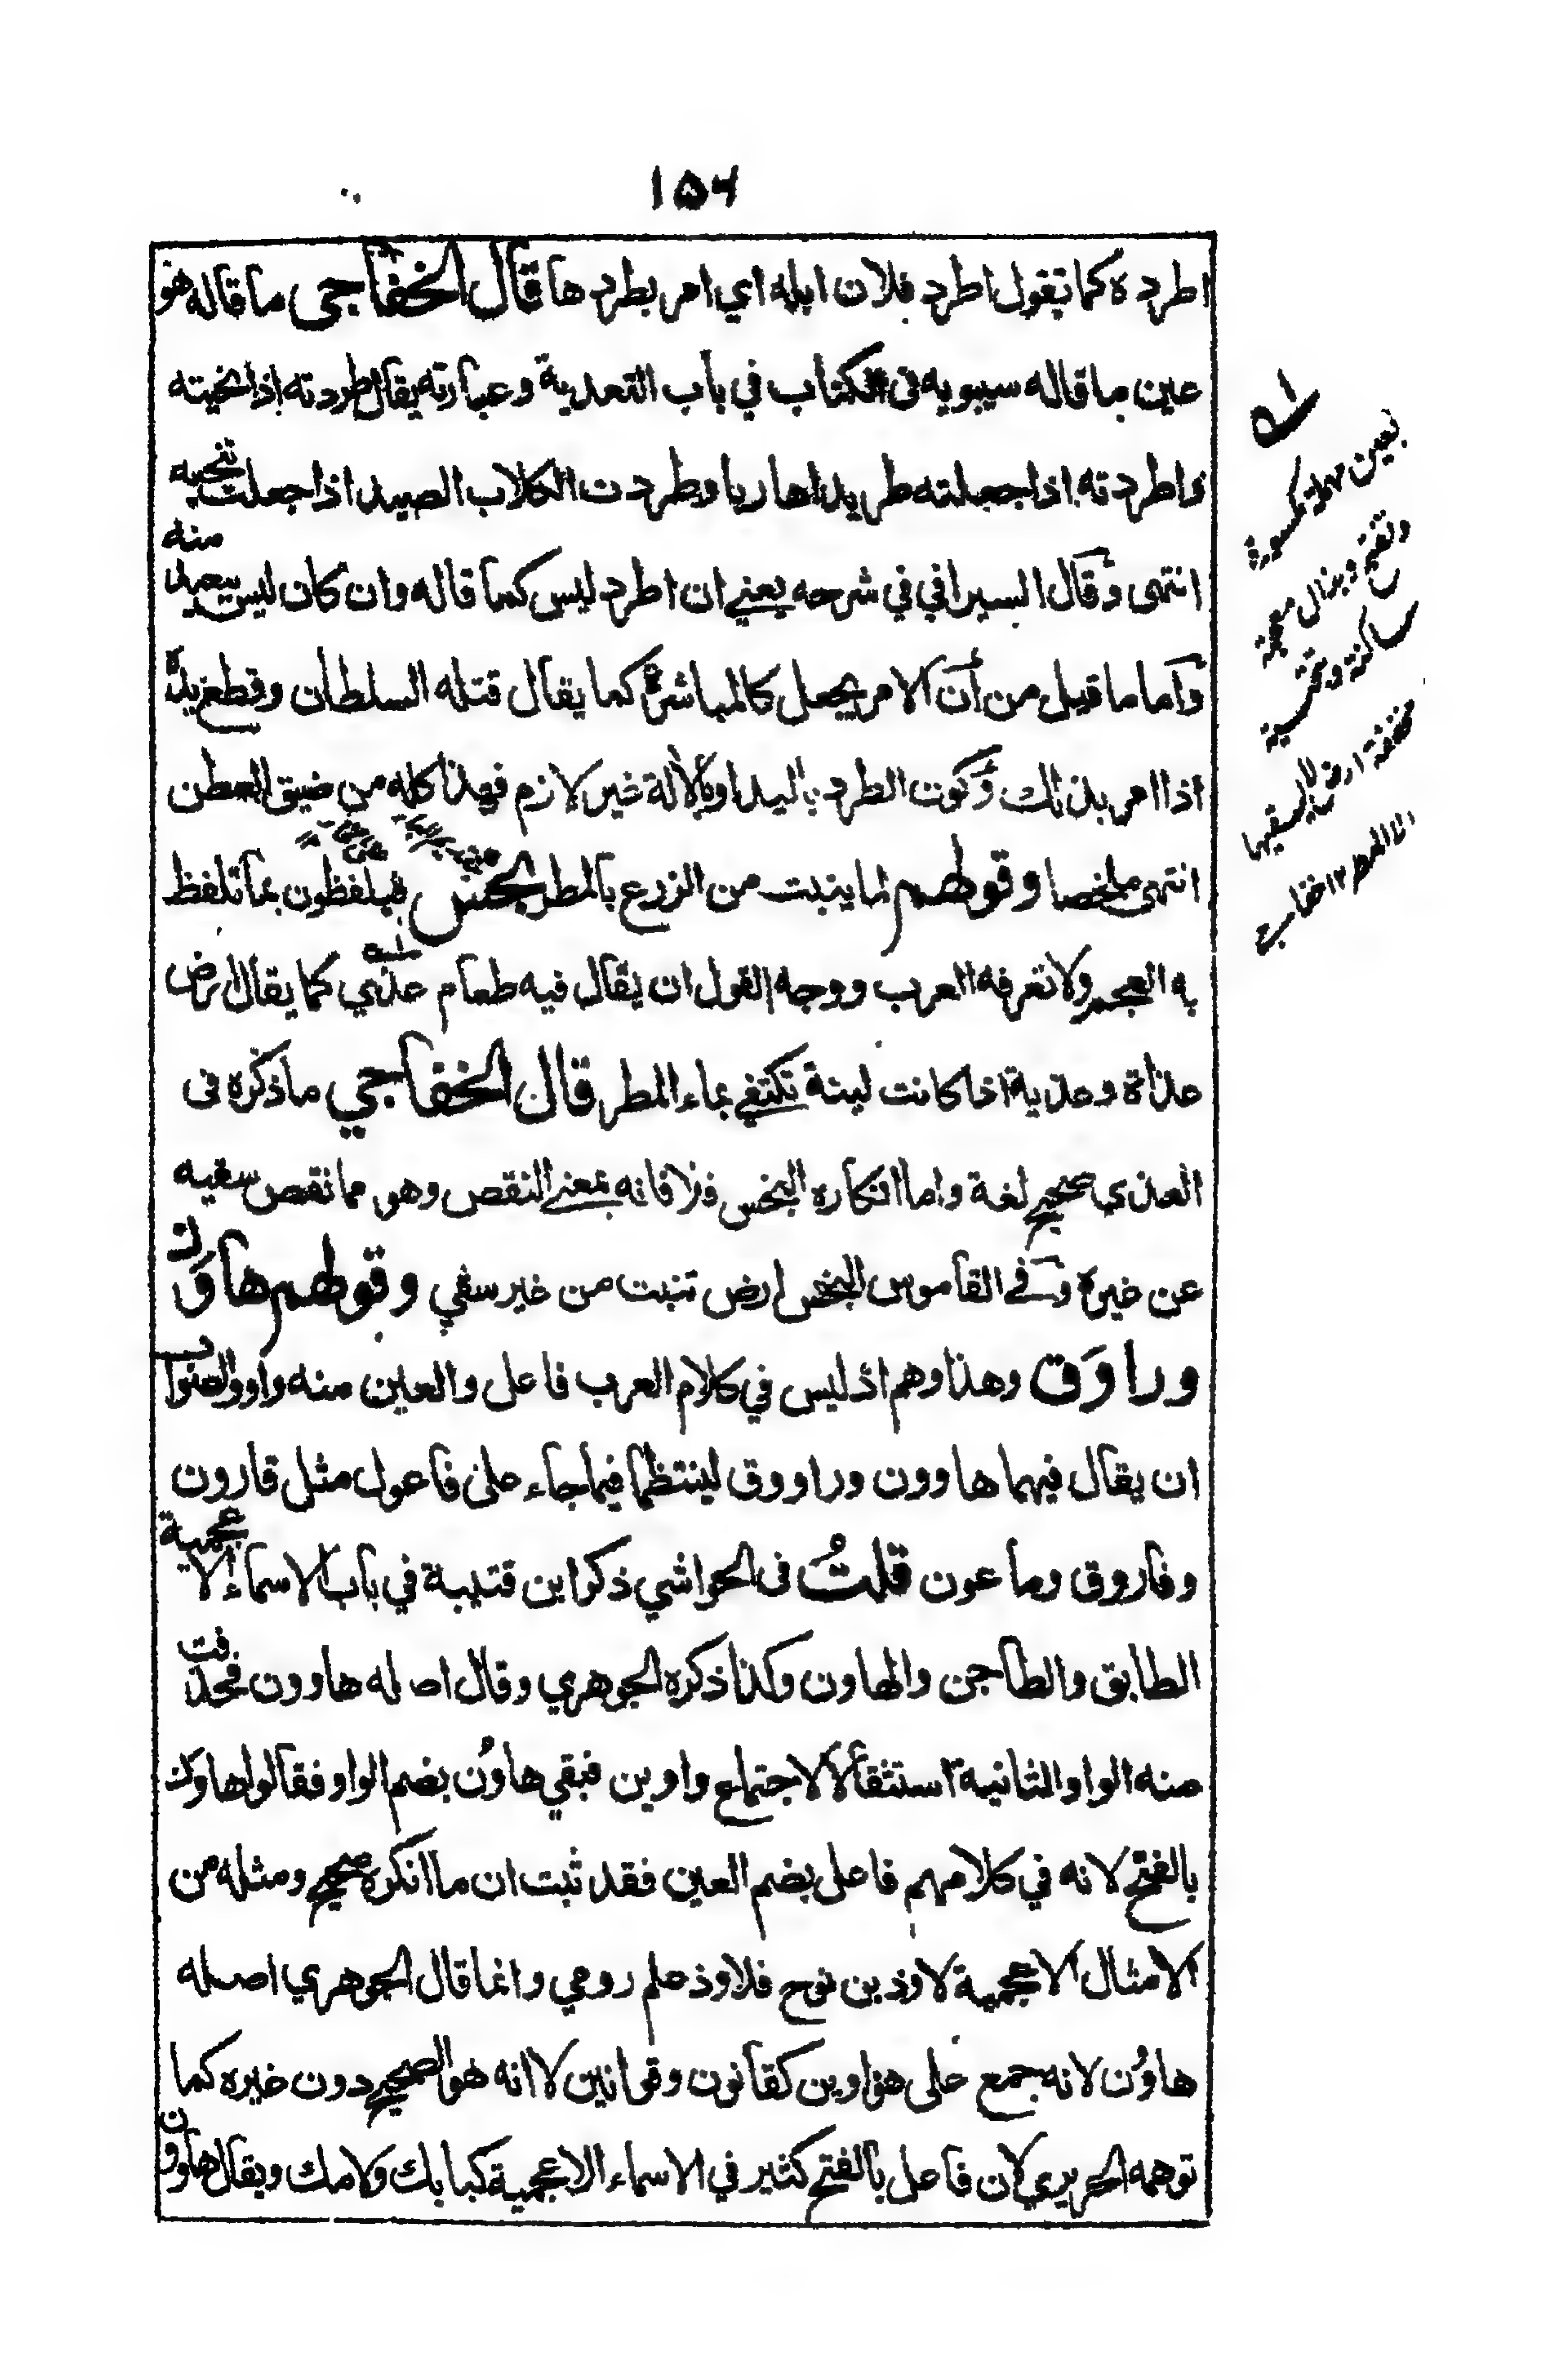 ۱۵۶
اطرده كما تقول اطرد فلان ابله اي امر بطردها قال الخفاجي ما قاله هو
عين ما قاله سيبويه فى الكتاب في باب التعدية وعبارته يقال طردته اذا نحيته
واطردته اذا جعلته طريدا هاربا وطردت الكلاب الصيد اذا جعلت تنحيه
منه
انتهى وقال السيرافي في شرحه يعني ان اطرد ليس كما قاله وان كان ليس ببعيد
واما ما قيل من أن الامر يجعل كالمباشرة كما يقال قتله السلطان وقطع يده
اذا امر بذلك وكون الطرد باليد او بالآلة غير لازم فهذا كله من ضيق العطن
انتهى ملخصا وقولهم لما ينبت من الزرع بالمطر البخس فيلفظون بما تلفظ
به العجم ولا تعرفه العرب ووجه القول ان يقال فيه طعام عذي كما يقال ارض
عذاة وعذية اذا كانت لينة تكتفي بماء المطر قال الخفاجي ما ذكره فى
العذي صحيح لغة واما انكاره البخس فلا فانه بمعنى النقص وهو مما نقص سقيه
عن غيره وفي القاموس البخس ارض تنبت من غير سقي وقولهم هاوَن
وراوَق وهذا وهم اذ ليس في كلام العرب فاعل والعين منه واو والصواب
ان يقال فيهما هاوون وراووق لينتظما فيما جاء على فاعول مثل قارون
وفاروق وماعون قلتُ فى الحواشي ذكر ابن قتيبة في باب الاسماء الاعجمية
الطابق والطاجن والهاون وكذا ذكره الجوهري وقال اصله هاوون فحذفت
منه الواو الثانية استثقالا لاجتماع واوين فبقي هاوُن بضم الواو فقالوا هاوَن
بالفتح لانه في كلامهم فاعل بضم العين فقد ثبت ان ما انكره صحيح ومثله من
الامثال الاعجمية لاوذ بن نوح فلاوذ علم رومي وانما قال الجوهري اصله
هاوُن لانه جمع على هواوين كقانون وقوانين لا انه هو الصحيح دون غيره كما
توهمه الحريري لان فاعل بالفتح كثير في الاسماء الاعجمية كبابك ولامك ويقال هاوون
بعين مهملة مكسورة
وتفتح وبذال معجمة
ساكنة وتحتية
مخففة ارض لا يسقيها
الا المطر ۱۲ خفاجي